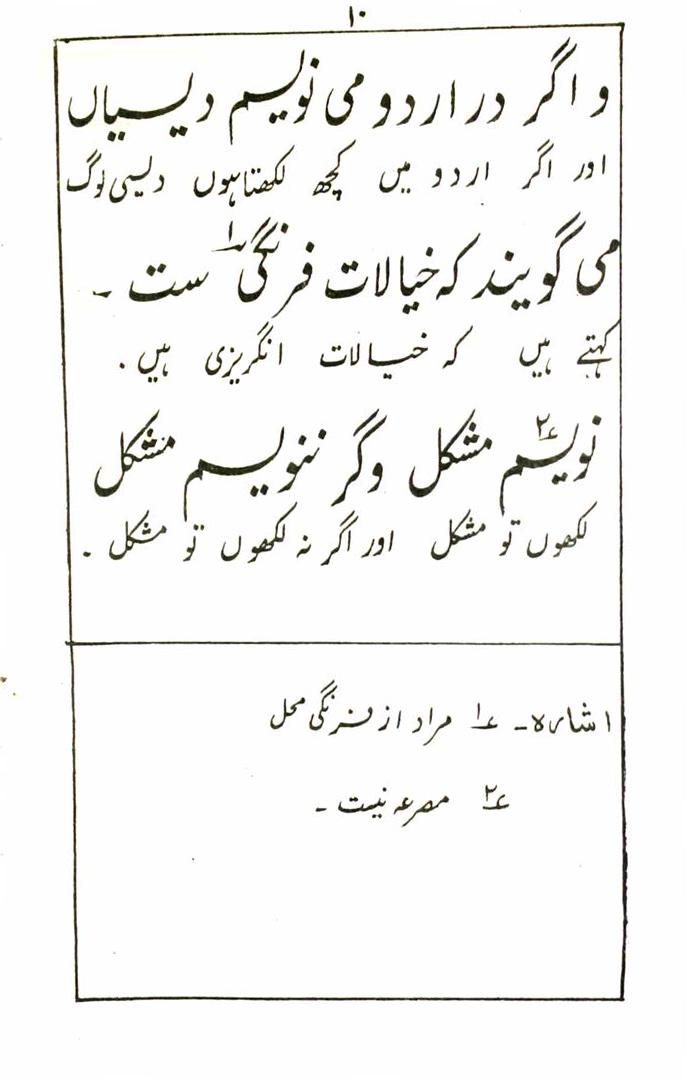 ۱۰
و اگر در اردو می نویسم دیسیاں
اور اگر اردو میں کچھ لکھتا ہوں دیسی لوگ
می گویند که خیالات فرنگی ؎۱ ست ۔
کہتے ہیں کہ خیالات انگریزی ہیں .
نویسم ؎۲ مشکل وگر ننویسم مشکل
لکھوں تو مشکل اور اگر نہ لکھوں تو مشکل ۔
اشاره ۔ ؎۱ مراد از فرنگی محل
؎۲ مصرعہ نیست ۔